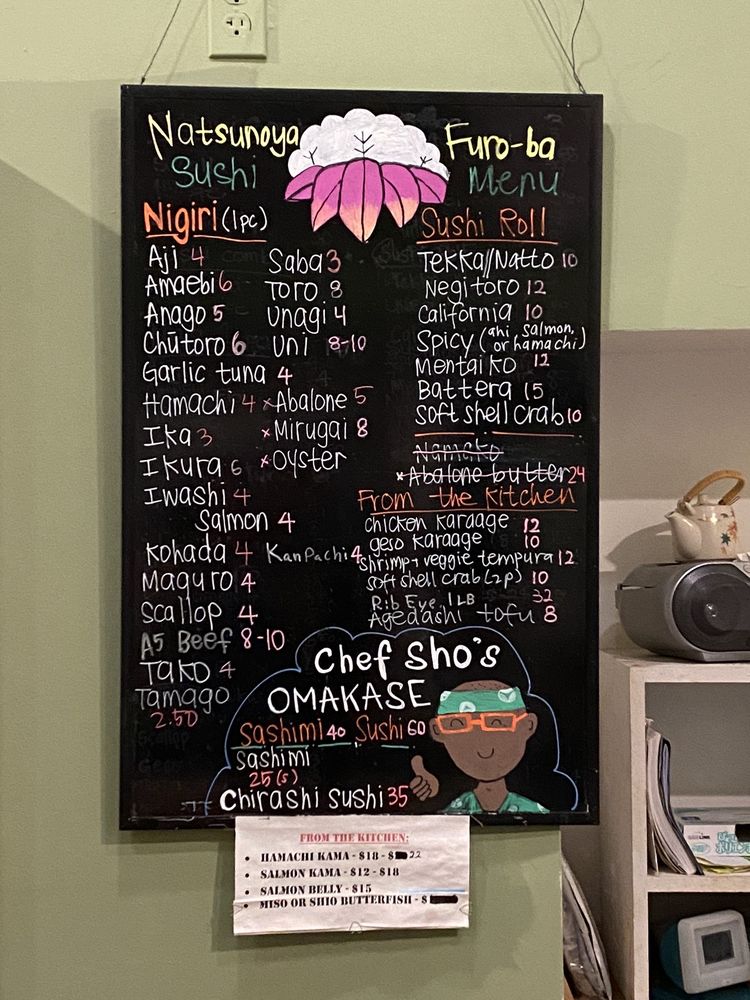 Natsunoya Furo-ba
Sushi Menu
Nigiri (1pc)
Aji 4
Amaebi 6
Anago 5
Chūtoro 6
Garlic tuna 4
Hamachi 4
Ika 3
Ikura 6
Iwashi 4
Salmon 4
Kohada 4
Maguro 4
Scallop 4
A5 Beef 8-10
Tako 4
Tamago
2.50
Saba 3
Toro 8
Unagi 4
Uni 8-10
xAbalone 5
xMirugai 8
xOyster
Kanpachi 4
Sushi Roll
Tekka//Natto 10
Negitoro 12
California 10
Spicy (ahi, salmon,
or hamachi)
Mentaiko 12
Battera 15
Soft shell crab 10
Namako
*Abalone butter 24
From the Kitchen
chicken karaage 12
geso karaage 10
shrimp + veggie tempura 12
soft shell crab (2p) 10
Rib Eye 1LB 32
Agedashi tofu 8
Chef Sho's
OMAKASE
Sashimi 40 Sushi 60
Sashimi
25 (s)
Chirashi Sushi 35
FROM THE KITCHEN:
• HAMACHI KAMA - $18 - $22
• SALMON KAMA - $12 - $18
• SALMON BELLY - $15
• MISO OR SHIO BUTTERFISH - $